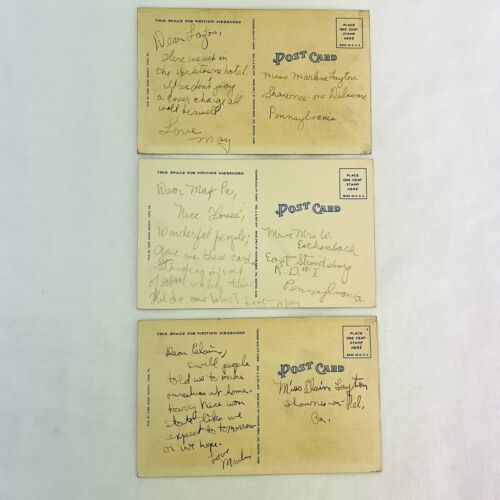 THIS SPACE FOR WRITING MESSAGES
Dear Layton,
Here we set in
the Yorktowne hotel.
If we don't pay
a cover charge all
will be swell.
Love
May
POST CARD
PLACE
ONE CENT
STAMP
HERE
MADE IN U.S.A.
Miss Marlene Layton
Shawnee-on Delaware
Pennsylvania
THIS SPACE FOR WRITING MESSAGES
Dear Ma & Pa,
Nice House,
Wonderful people,
Gave me these card
Standing in front
of writing this.
Phil do one win?. Love May
POST CARD
PLACE
ONE CENT
STAMP
HERE
MADE IN U.S.A.
Mr & Mrs W.
Eschenbach
East Stroudsburg
R.D.#1
Pennsylvania
THIS SPACE FOR WRITING MESSAGES
Dear Elain,
Swell people
told us to make
ourselves at home.
Harry Nice won
State like we
expect to tomorrow
or we hope.
Love
POST CARD
PLACE
ONE CENT
STAMP
HERE
MADE IN U.S.A.
Miss Elain Layton
Shawnee-on-Del,
Pa.